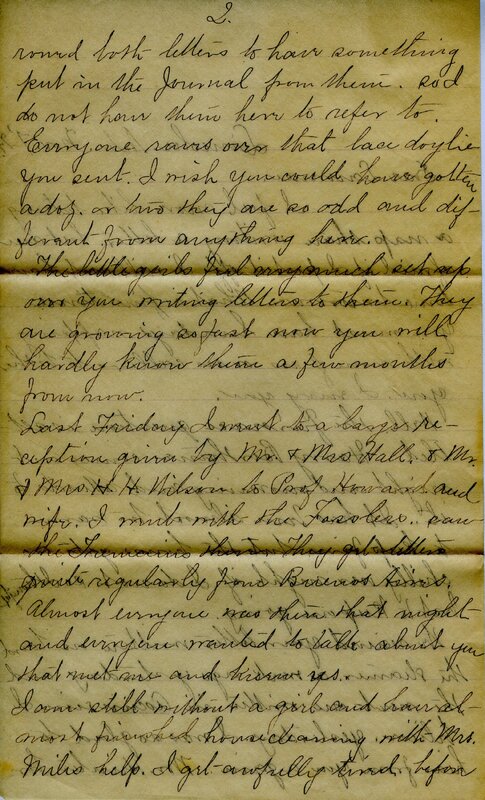 2.
rowed both letters to have something
put in the Journal from them. so I
do not have them here to refer to.
Everyone raves over that lace doylie
you sent. I wish you could have gotten
a doz. or two they are so odd and dif-
ferent from anything here.
The little girls feel very much set up
over you writing letters to them. They
are growing so fast now you will
hardly know them a few months
from now.
Last Friday I went to a large re-
ception given by Mr. & Mrs Hall. & Mr.
& Mrs. H. H. Wilson to Prof. Howard and
wife. I went with the saw
the there. They get letters
quite regularly from Buenos Aires.
Almost everyone was there that night
and everyone wanted to talk about you
that met me and knew us.
I am still without a girl and have al-
most finished housecleaning with Mrs.
Miles help. I get awfully tired before